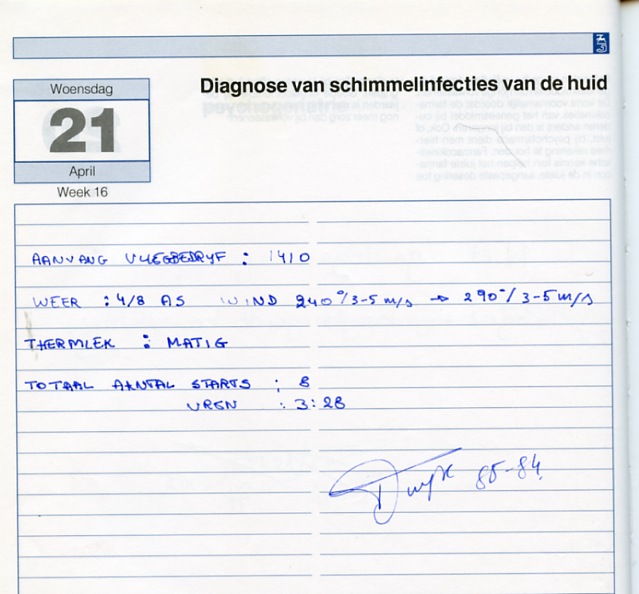 Diagnose van schimmelinfecties van de huid
Woensdag
21
April
Week 16
AANVANG VLIEGBEDRYF : 1410
WEER : 4/8 AS WIND 240°/3-5 m/s → 290°/3-5 m/s
THERMIEK : MATIG
TOTAAL AANTAL STARTS : 8
UREN : 3:28
85-84